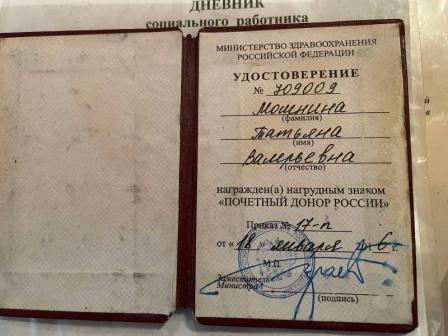 ДНЕВНИК
социального работника
МИНИСТЕРСТВО ЗДРАВООХРАНЕНИЯ
РОССИЙСКОЙ ФЕДЕРАЦИИ
УДОСТОВЕРЕНИЕ
№ 709009
Мошнина
(фамилия)
Татьяна
(имя)
Валерьевна
(отчество)
награжден(а) нагрудным знаком
«ПОЧЕТНЫЙ ДОНОР РОССИИ»
Приказ № 17-п
от « 18 » января 2016 г.
М.П.
Заместитель
Министра
(подпись)